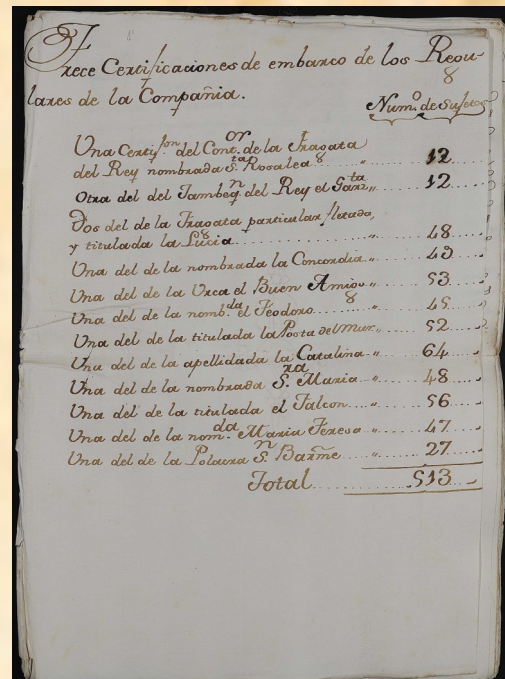 Trece Certificaciones de embarco de los Regu-
lares de la Compañia.
Num.o de Sugetos
Una Certif.on del Cont.or de la Fragata
del Rey nombrada S.ta Rosalea „ 12
Otra del del Jambeq.n del Rey el „ 12
Dos del de la Fragata particular fletada,
y titulada la Lucia „ 48
Una del de la nombrada la Concordia „ 49
Una del de la Urca el Buen Amigo „ 53
Una del de la nomb.da el Teodoro „ 45
Una del de la titulada la Posta del Mar „ 52
Una del de la apellidada la Catalina „ 64
Una del de la nombrada S.ra Maria „ 48
Una del de la titulada el Falcon „ 56
Una del de la nom.da Maria Teresa „ 47
Una del de la Polacra S.n Barme „ 27
Total 513